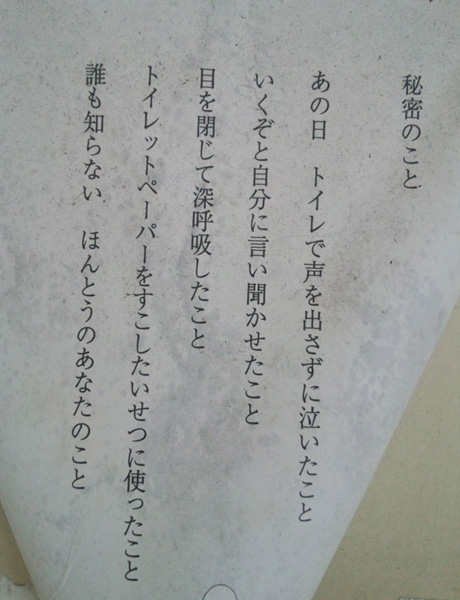 秘密のこと
あの日　トイレで声を出さずに泣いたこと
いくぞと自分に言い聞かせたこと
目を閉じて深呼吸したこと
トイレットペーパーをすこしたいせつに使ったこと
誰も知らない　ほんとうのあなたのこと